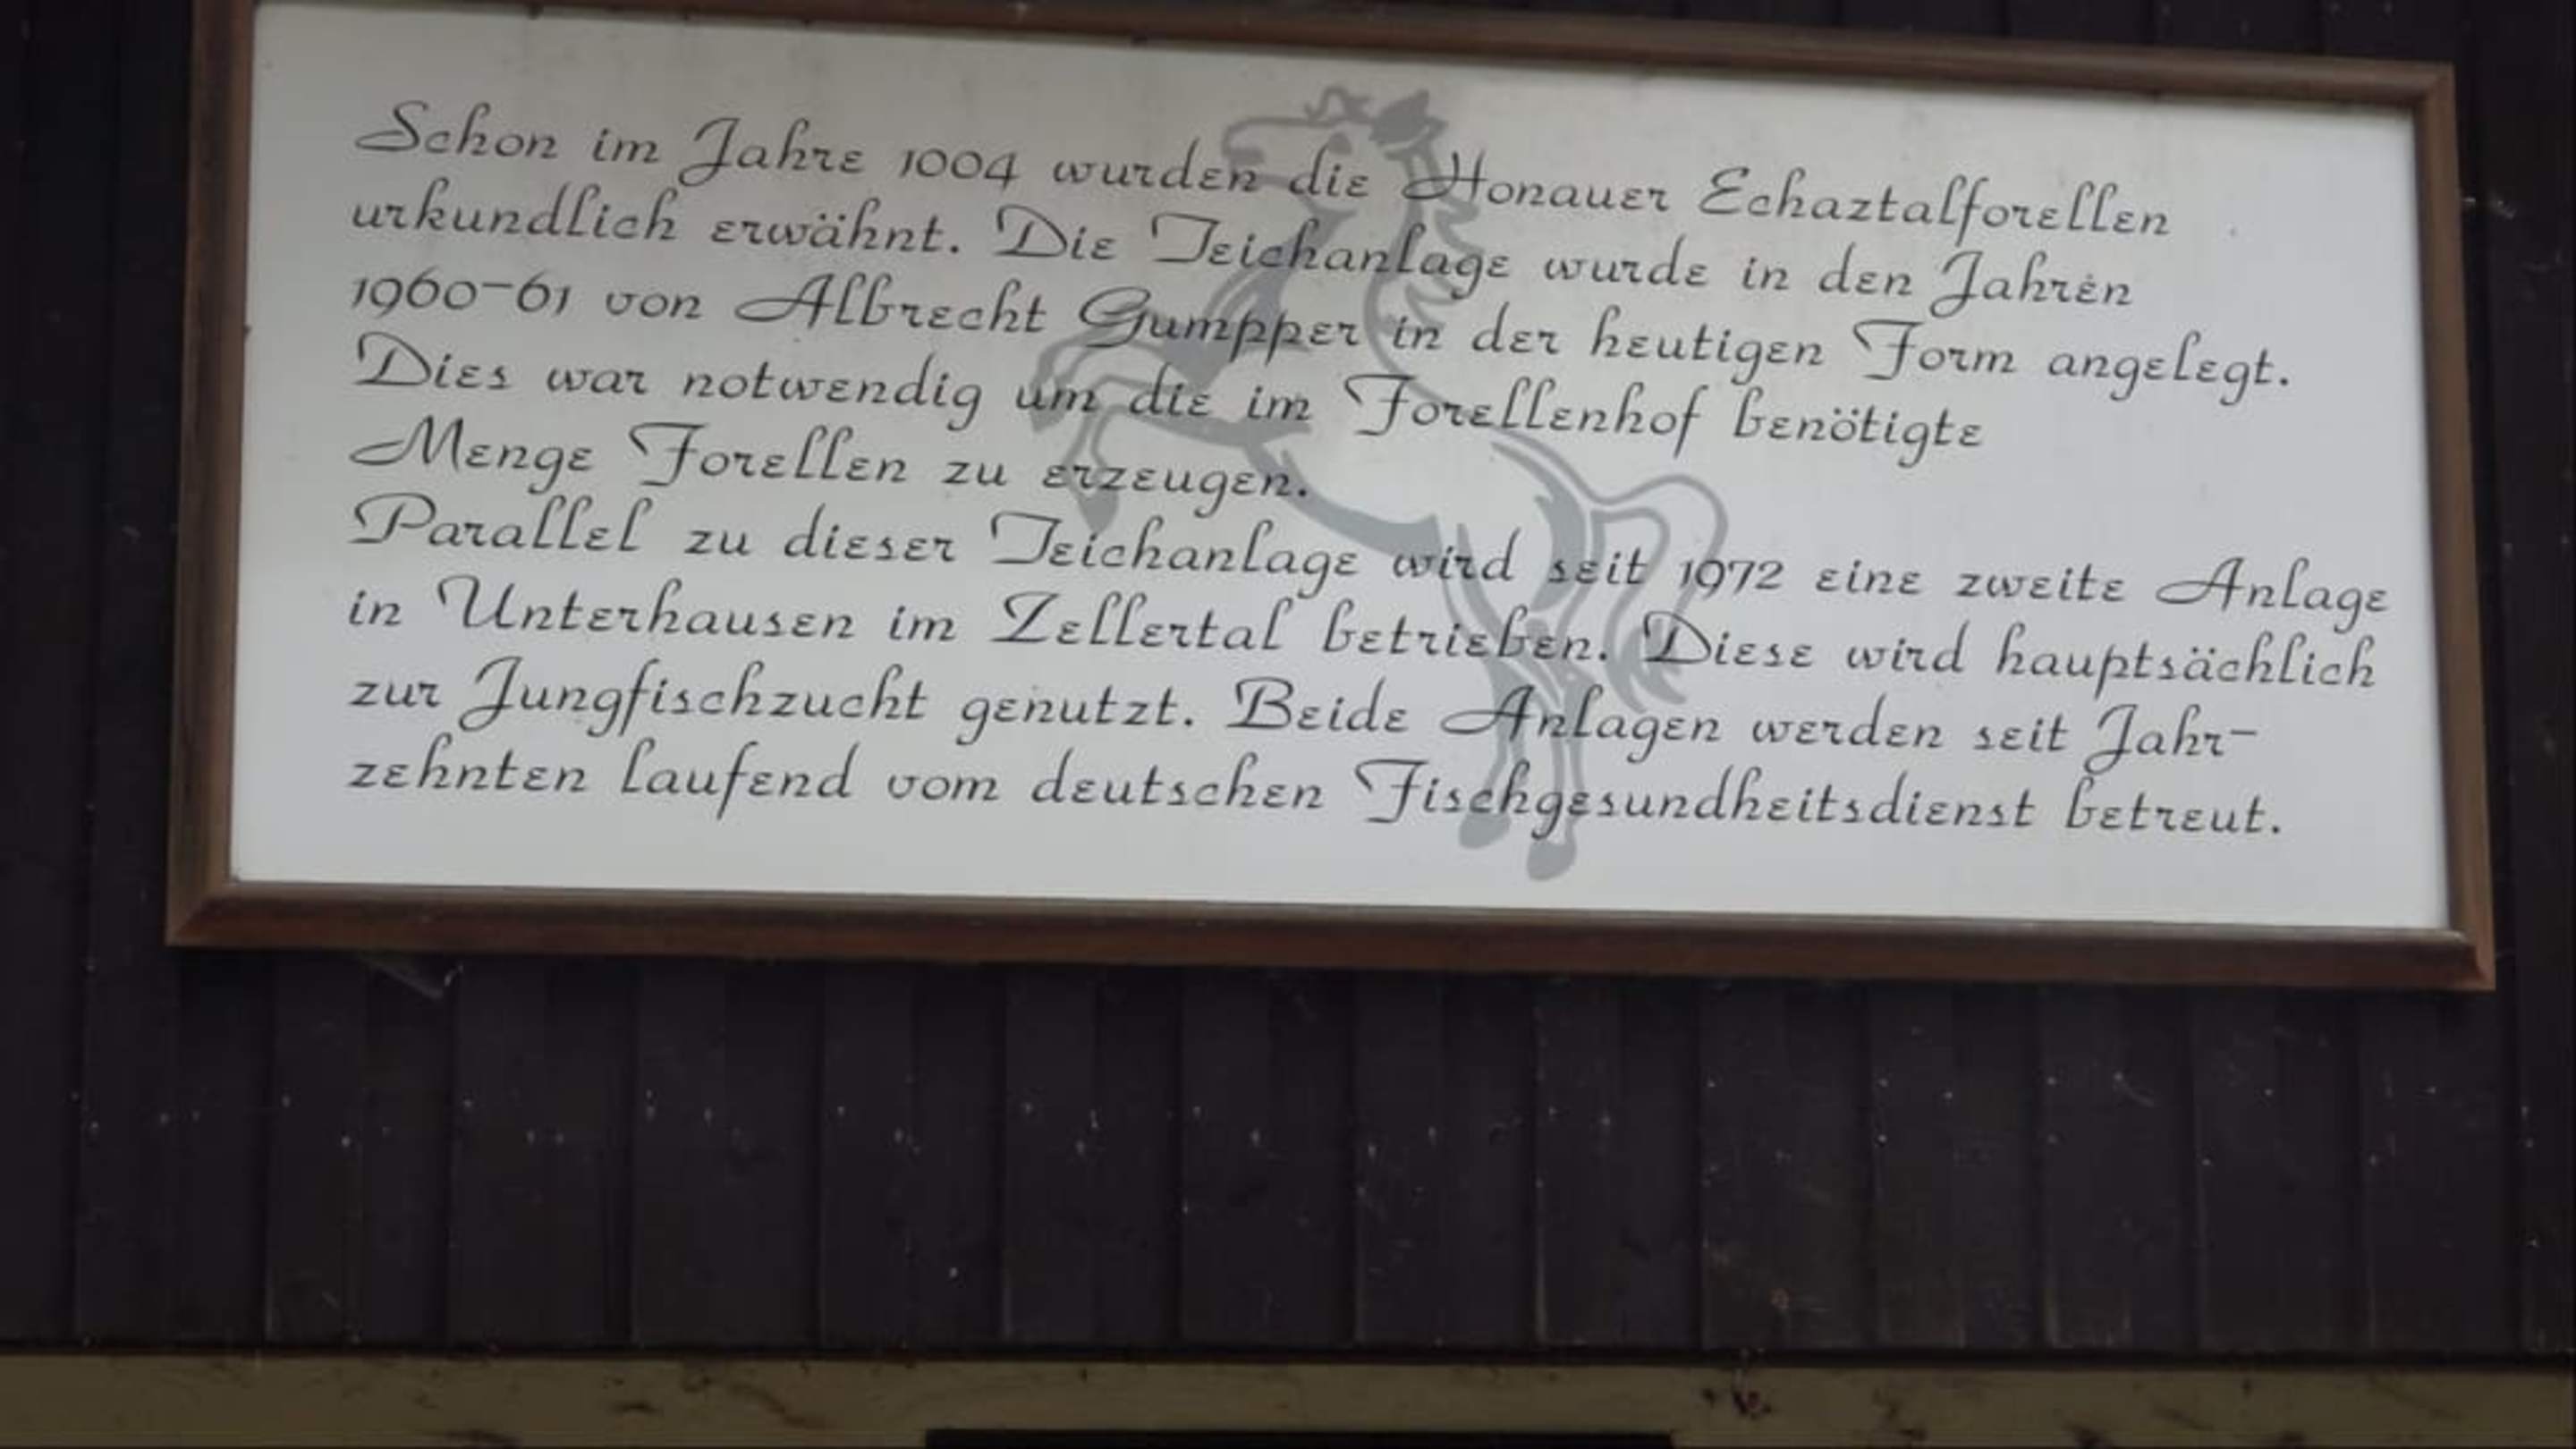 Schon im Jahre 1004 wurden die Honauer Echaztalforellen
urkundlich erwähnt. Die Teichanlage wurde in den Jahren
1960-61 von Albrecht Gumpper in der heutigen Form angelegt.
Dies war notwendig um die im Forellenhof benötigte
Menge Forellen zu erzeugen.
Parallel zu dieser Teichanlage wird seit 1972 eine zweite Anlage
in Unterhausen im Zellertal betrieben. Diese wird hauptsächlich
zur Jungfischzucht genutzt. Beide Anlagen werden seit Jahr-
zehnten laufend vom deutschen Fischgesundheitsdienst betreut.